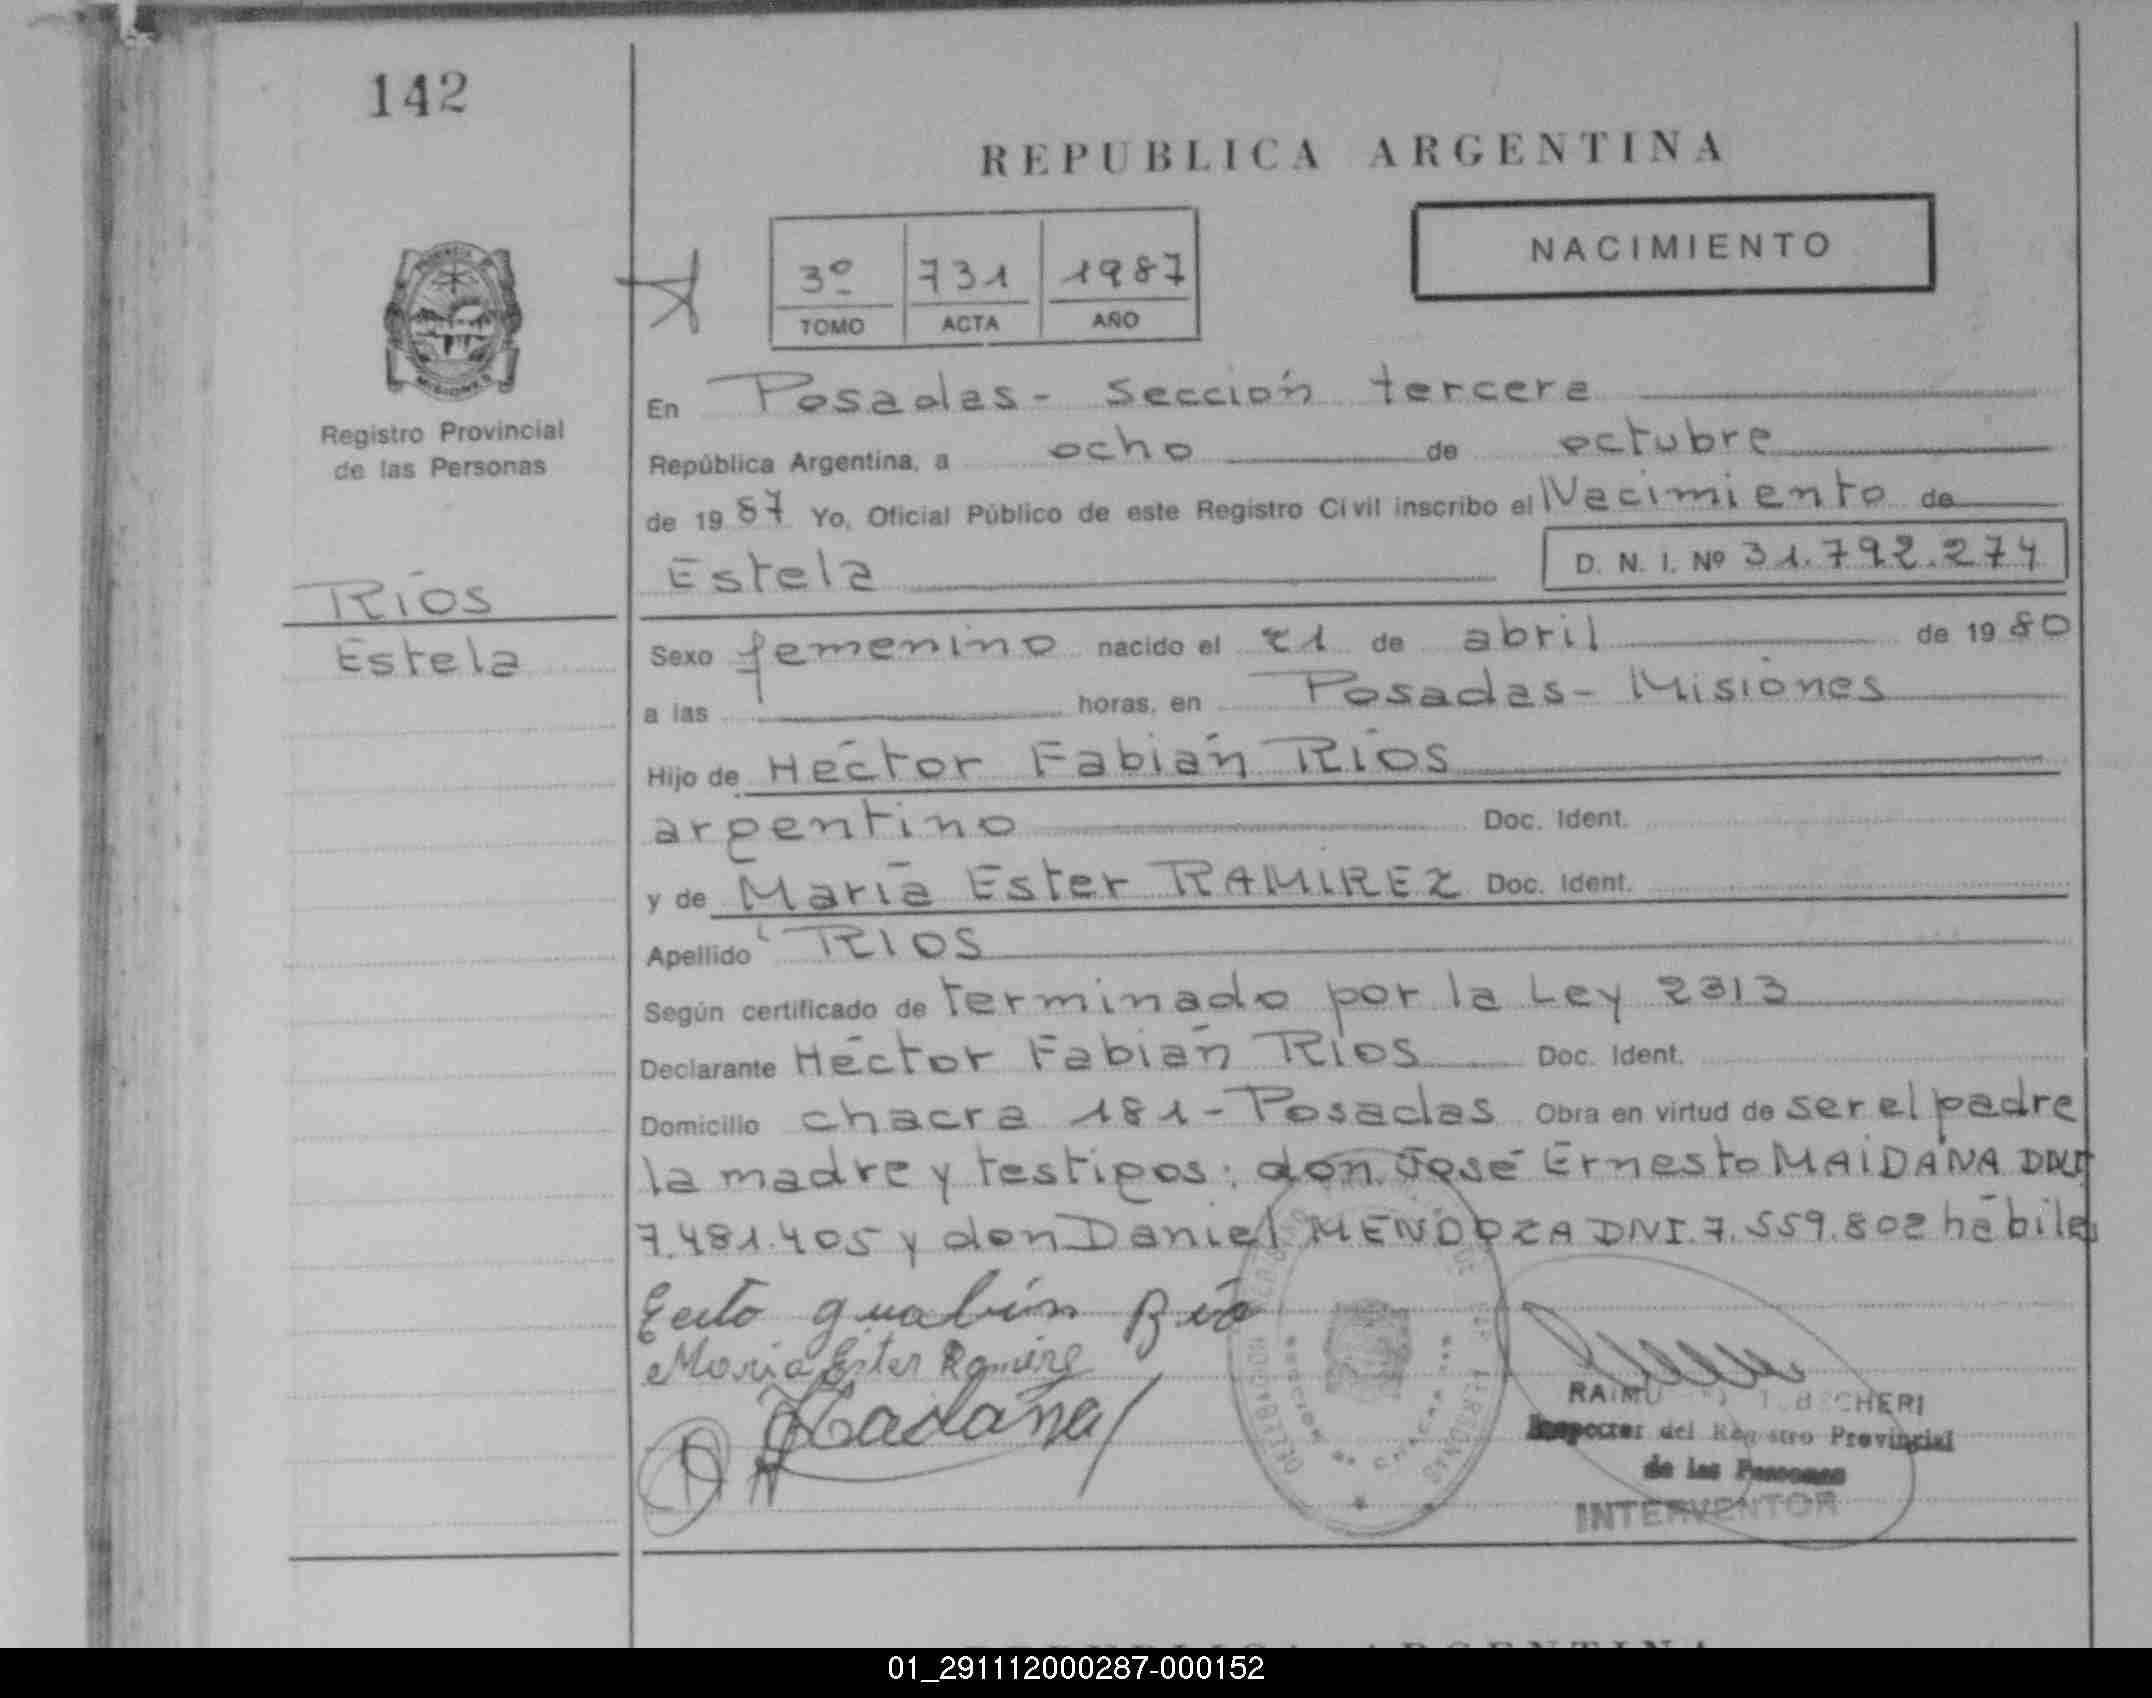 142
REPUBLICA ARGENTINA
NACIMIENTO
3º 731 1987
TOMO ACTA AÑO
Registro Provincial
de las Personas
Ríos
Estela
En Posadas - Sección tercera
República Argentina, a ocho de octubre
de 1987 Yo, Oficial Público de este Registro Civil inscribo el Nacimiento de
Estela D. N. I. Nº 31.792.274
Sexo femenino nacido el 21 de abril de 1980
a las horas, en Posadas - Misiones
Hijo de Héctor Fabián Ríos
argentino Doc. Ident.
y de María Ester RAMIREZ Doc. Ident.
Apellido RIOS
Según certificado de terminado por la Ley 2313
Declarante Héctor Fabián Ríos Doc. Ident.
Domicilio chacra 181 - Posadas Obra en virtud de ser el padre
la madre y testigos: don José Ernesto MAIDANA DNI
7.481.405 y don Daniel MENDOZA DNI. 7.559.802 hábiles
María Ester Ramirez
Inspector del Registro Provincial
de las Personas
INTERVENTOR
REPUBLICA ARGENTINA
01_291112000287-000152